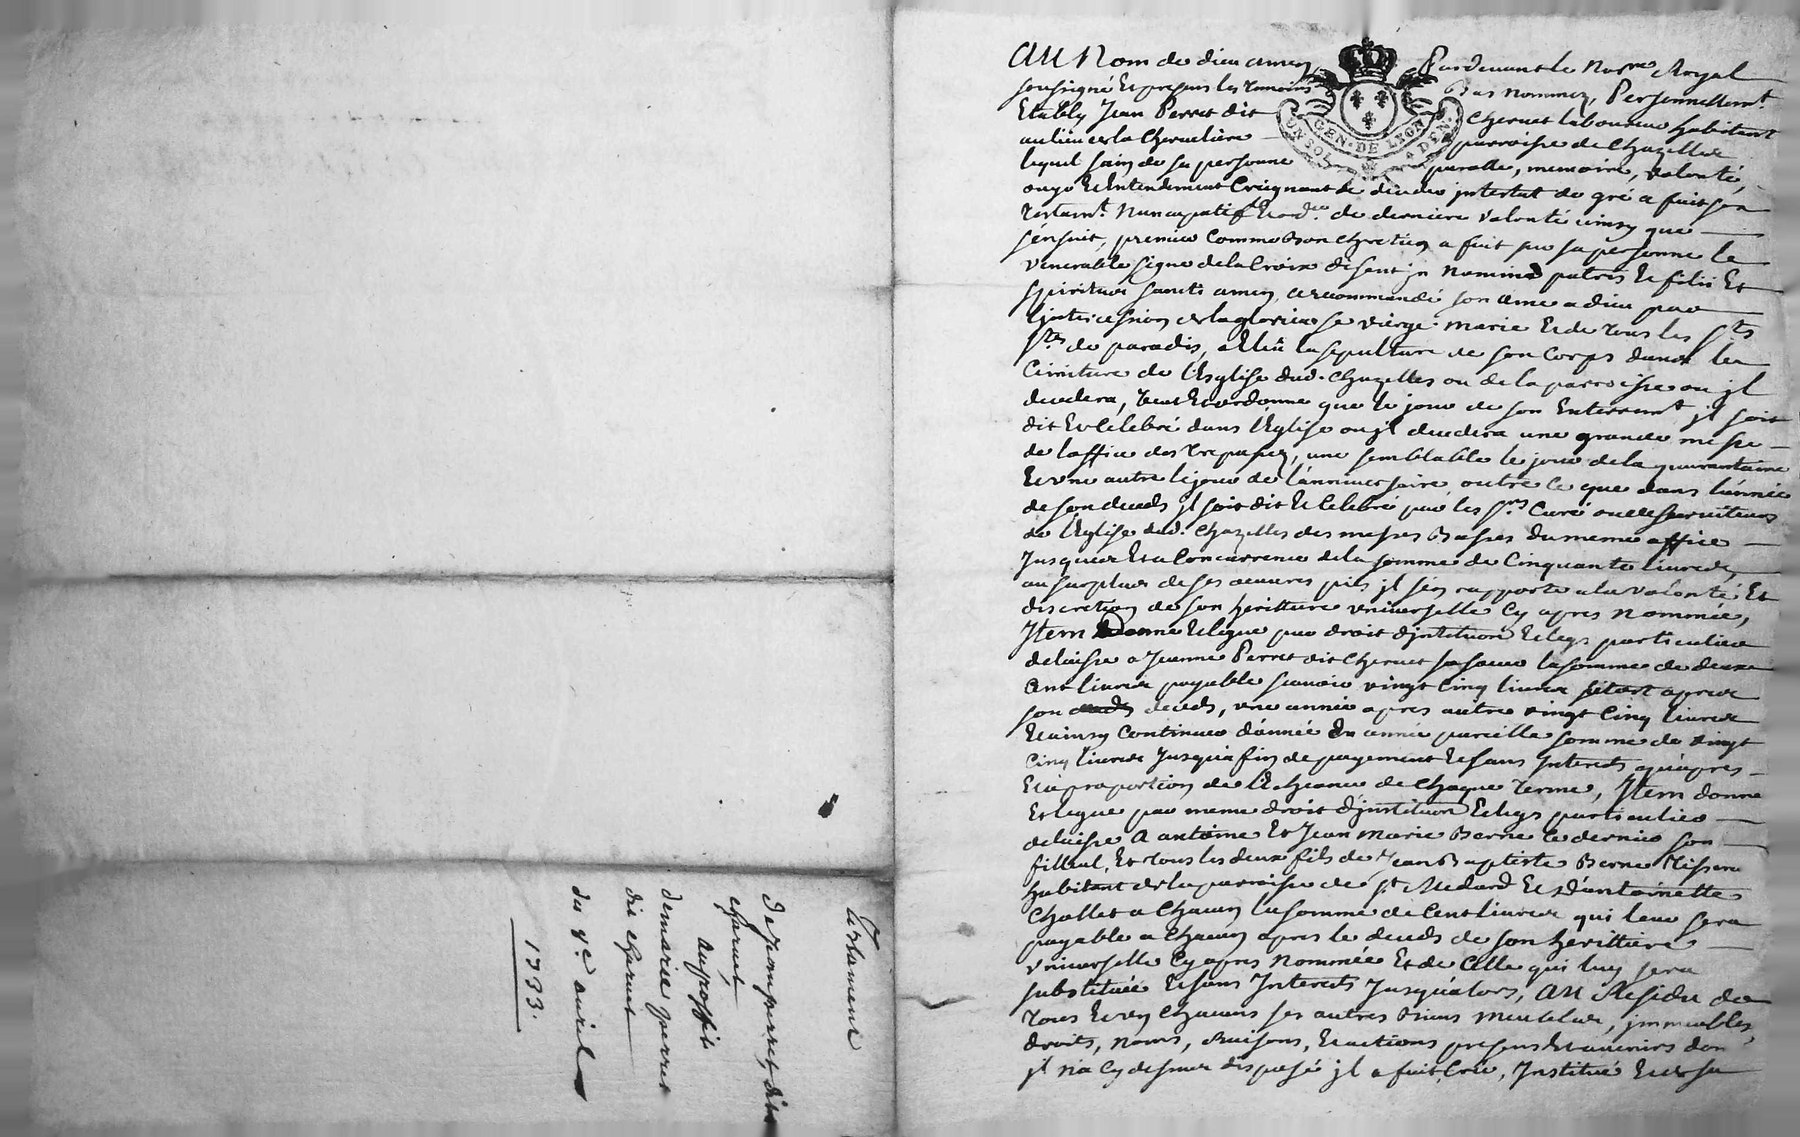 Testament
de jean perret dit
charuet
Au proffit
de marie perret
dit charuet
du 8e. auril
1733.
AU Nom de dieu amen Pardeuant le Notre Royal
soussigné Et presens les temoins Bas nommez, Personnellemt
Etably Jean Perret dit Cheruet laboureur habitant
au lieu de la Cherueliere parroisse de Chazelles
lequel sain de sa personne parolle, memoire, volonté,
ouye Et Entendement Craignant de deceder intestat de gré a fait son
testamt. Nuncupatif Et ordce de derniere volonté ainsy que
s'ensuit, premier Comme bon chretien a fait sur sa personne le
venerable signe de la Croix disant in nomine patris Et filii Et
spiritus sancti amen, a recommandé son ame a dieu par
l'jntercession de la glorieuse vierge marie Et de tous les Sts
Stes de paradis, a Elû la sepulture de son Corps dans le
Cimitiere de l'Esglise dud. Chazelles ou de la parroisse ou jl
decedera, veut Et ordonne que le jour de son Enterremt jl soit
dit Et Celebré dans l'Eglise ou jl decedera une grande messe
de l'office des trepassez, une semblable le jour de la quarantaine
Et une autre le jour de l'anniuersaire outre ce que dans l'année
de son deceds jl soit dit Et Celebré par les Srs Curé ou desseruiteurs
de l'Eglise dud. Chazelles des messes Basses du meme office
Jusques Et a Concurrence de la somme de Cinquante liures,
au surplus de ses oeuures pies jl s'en rapporte a la volonté Et
discretion de son herittiere vniuerselle Cy apres nommée,
Jtem Donne Et legue par droit d'jnstitution Et legs particulier
delaisse a Jeanne Perret dit Cheruet sa soeur la somme de deux
Cent liures payable scauoir vingt Cinq liures sitost apres
son deceds, vne année apres autre vingt Cinq liures
Et ainsy Continuer d'année En année pareille somme de vingt
Cinq liures Jusqu'a fin de payement Et sans Interests qu'apres
Et a proportion de l'Echeance de Chaque terme, Jtem donne
Et legue par meme droit d'jnstitution Et legs particulier
delaisse A antoine Et Jean Marie Berne le dernier son
filleul, Et tous les deux fils de Jean Baptiste Berne Tissera
habitant de la parroisse de St Medard Et d'antoinette
Chollet a Chacun la somme de Cent liures qui leur sera
payable a Chacun apres le deceds de son herittiere
vniuerselle Cy apres Nommée Et de Celle qui luy sera
substituée Et sans Interests Jusqu'alors, AU Residu de
tous Et vn Chacuns ses autres biens meubles, jmmeubles,
droits, noms, Raisons, Et actions presens Et auenirs don
jl n'a Cy dessus disposé jl a fait, Créé, Jnstitué Et de sa